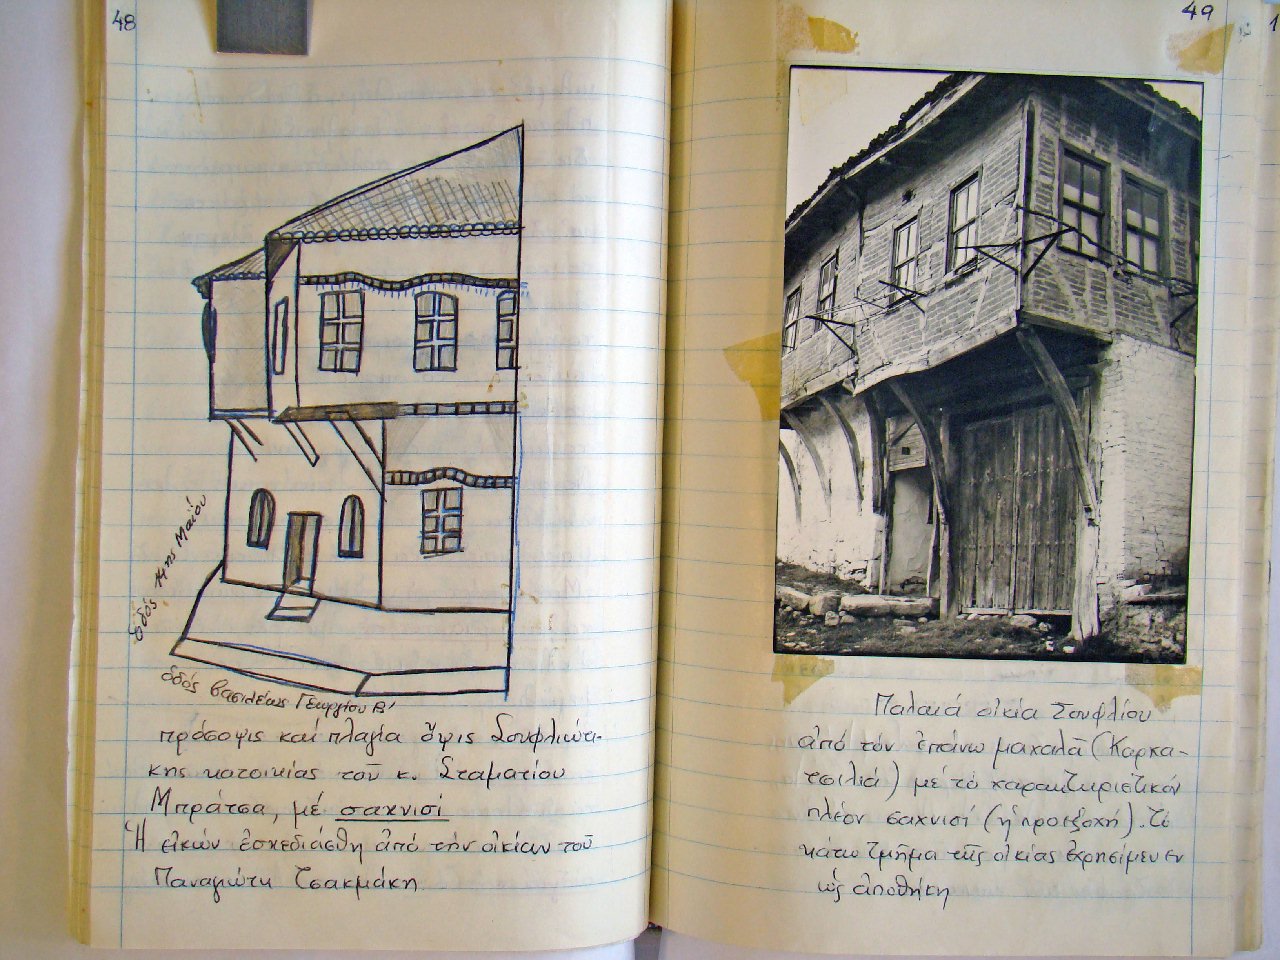 48
Ὁδός 14ης Μαΐου
ὁδός Βασιλέως Γεωργίου Β'
πρόσοψις καί πλαγία ὄψις Σουφλιώτι-
κης κατοικίας τοῦ κ. Σταματίου
Μπράτσα, μέ σαχνισί
Ἡ εἰκών ἐσχεδιάσθη ἀπό τήν οἰκίαν τοῦ
Παναγιώτη Τσακμάκη
49
Παλαιά οἰκία Σουφλίου
ἀπό τόν ἐπάνω μαχαλᾶ (Καρκα-
τσιλιά) μέ τό χαρακτηριστικόν
πλέον σαχνισί (ἡ προεξοχή). Τό
κάτω τμῆμα τῆς οἰκίας ἐχρησίμευεν
ὡς ἀποθήκη